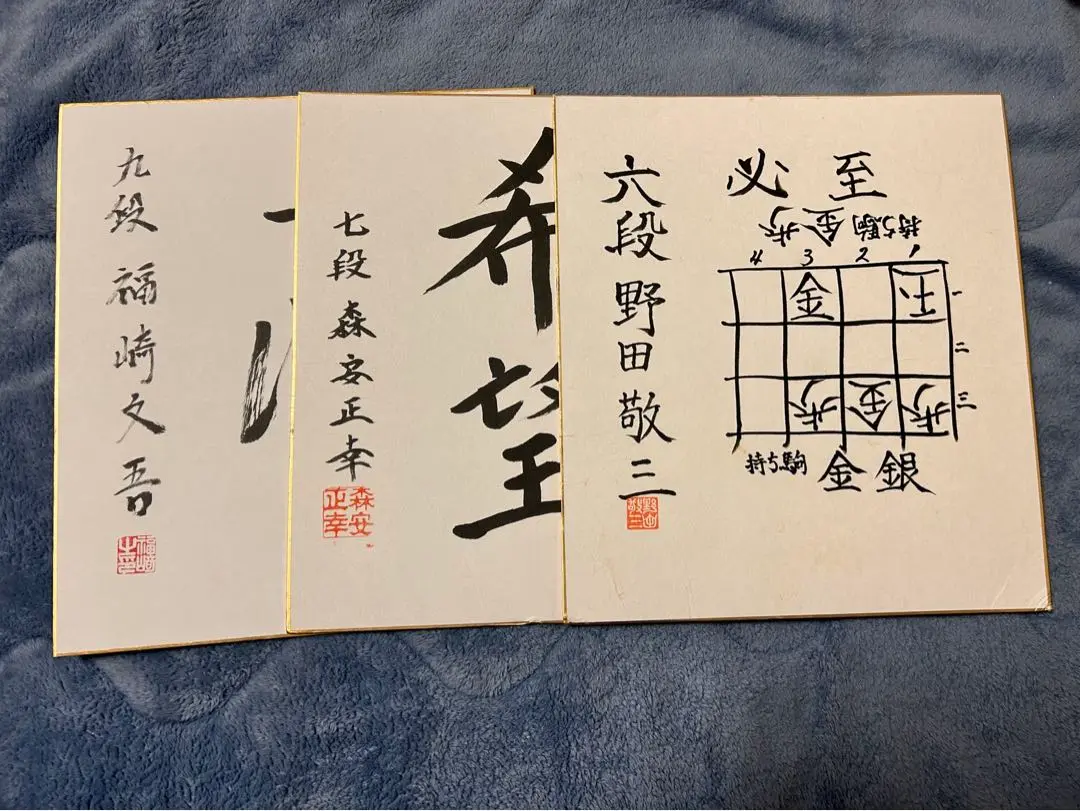 九段 福崎文吾
希望
七段 森安正幸
森安正幸
必至
持ち駒 金歩
4 3 2 1
金 玉 一
二
歩 金 歩 三
持ち駒 金銀
六段 野田敬三
野田敬三